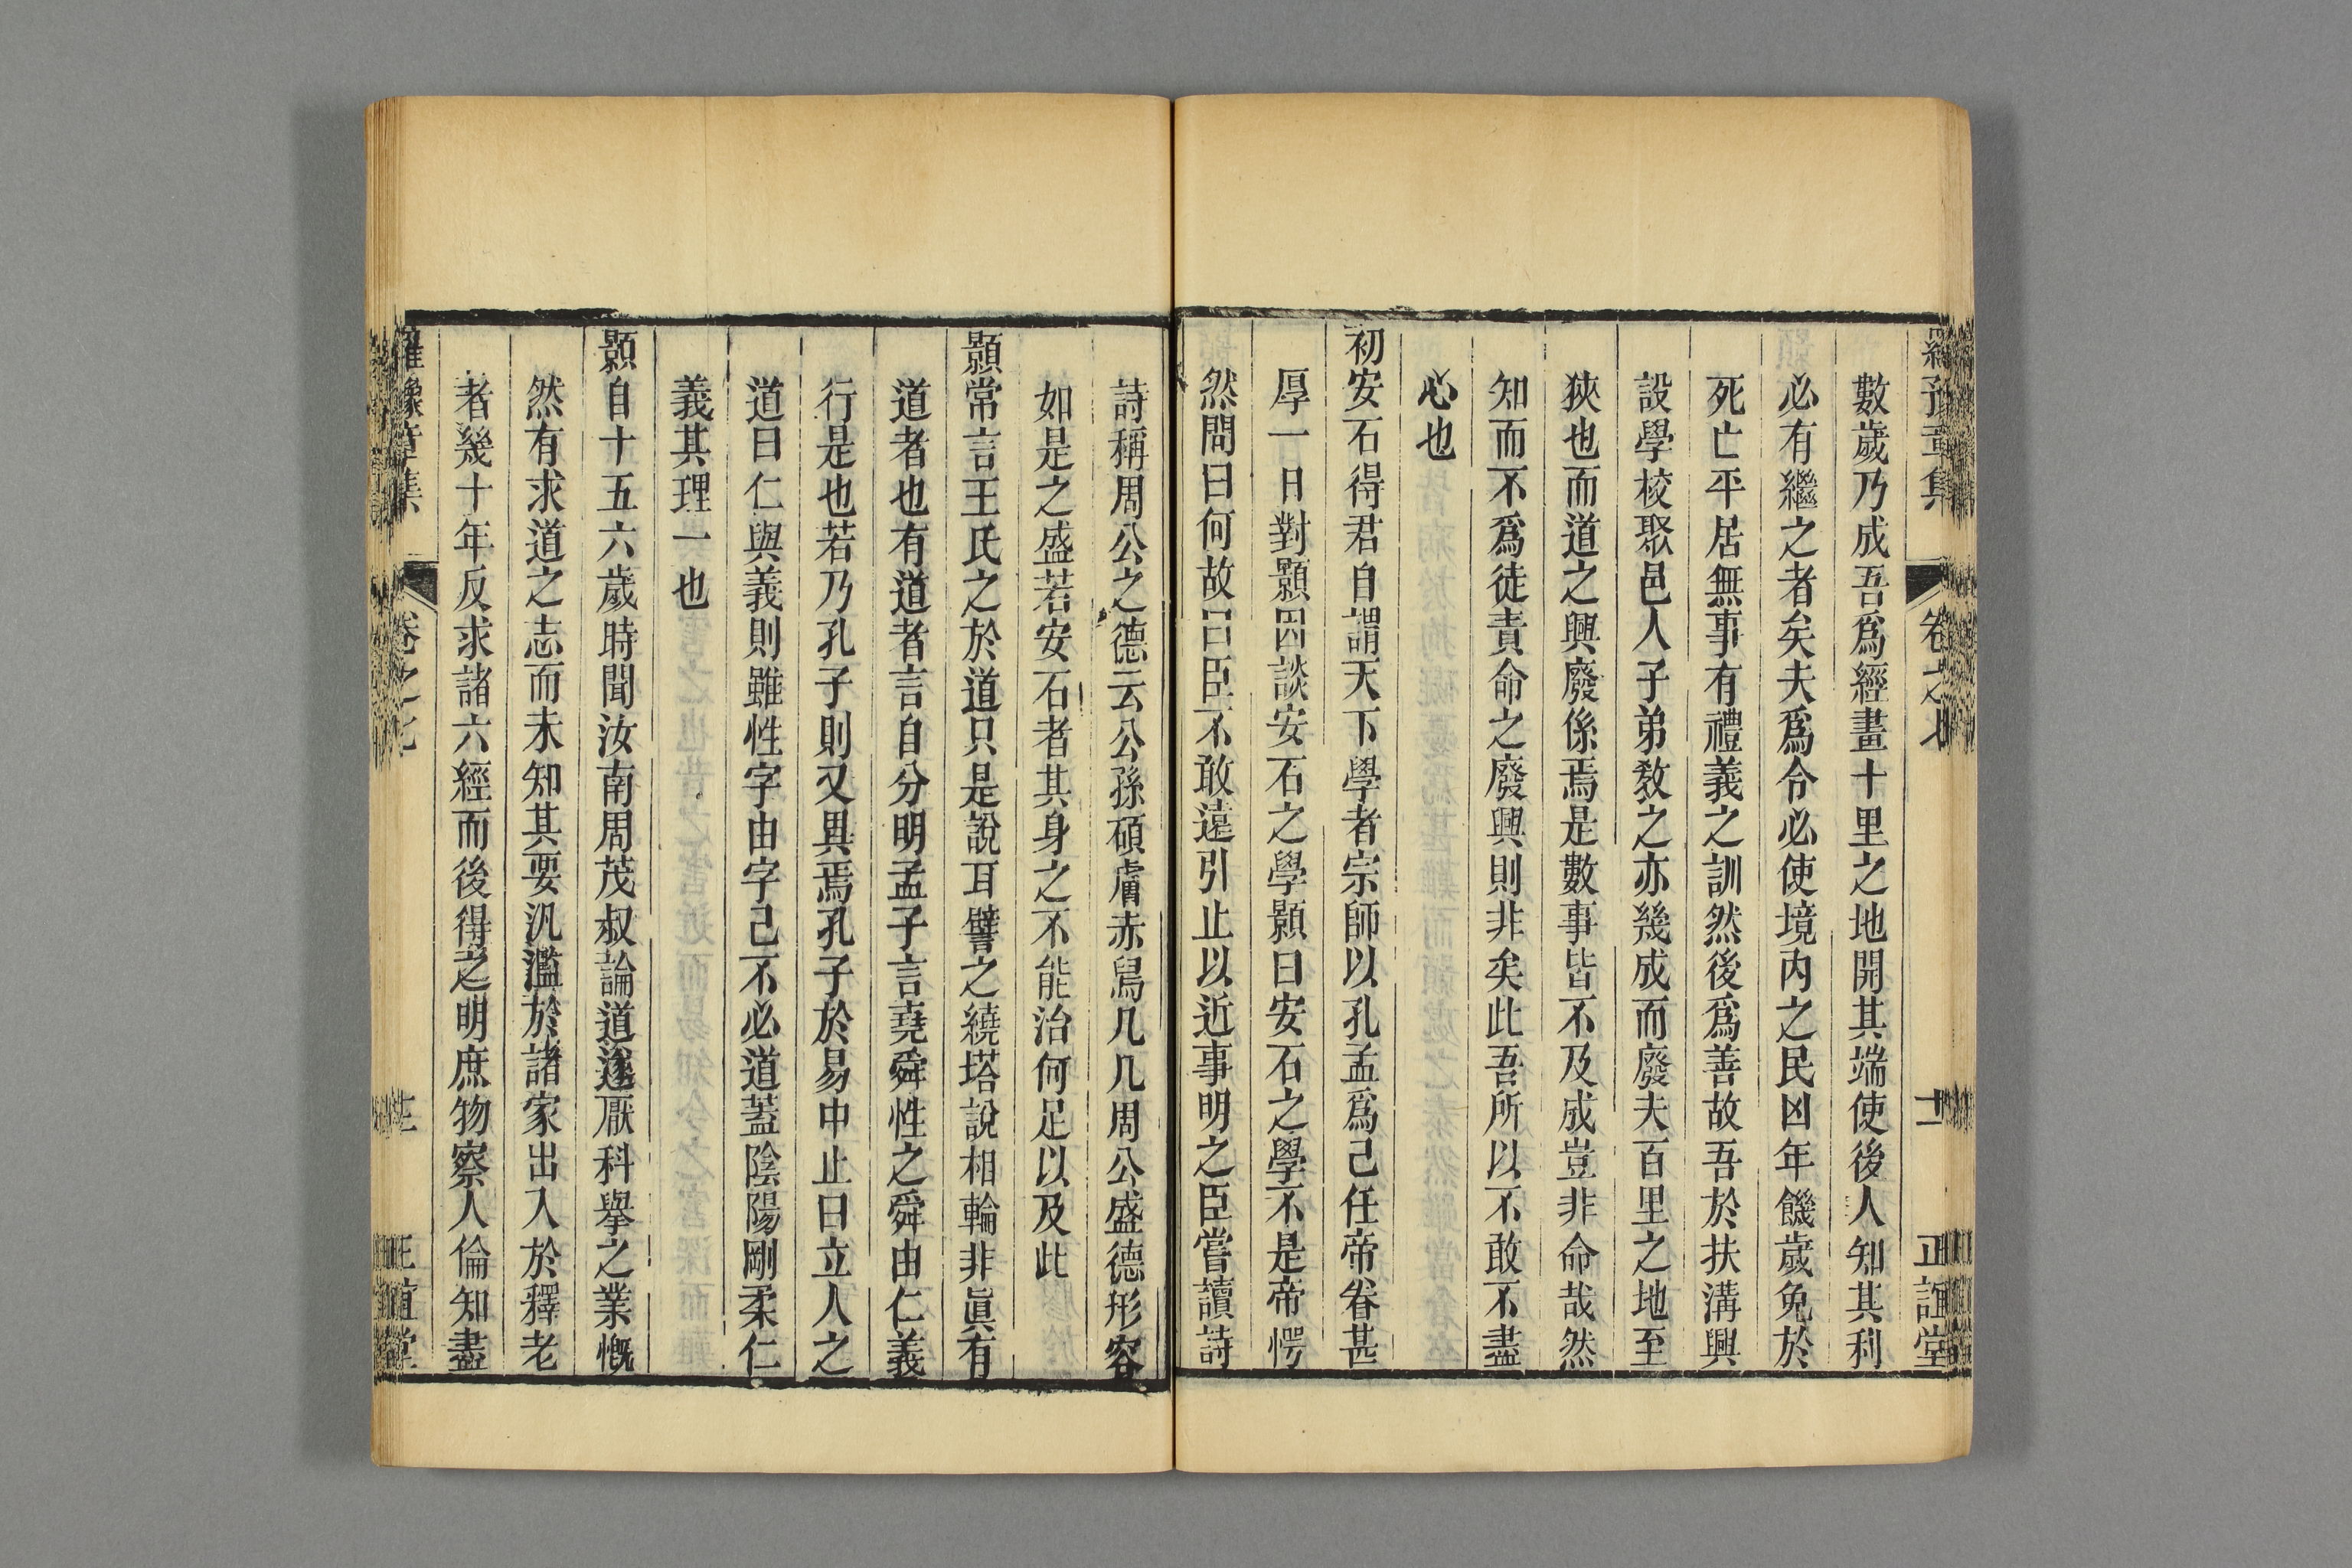 羅豫章集 卷之七 十二 正誼堂
數歲乃成吾爲經畫十里之地開其端使後人知其利
必有繼之者矣夫爲令必使境內之民凶年饑歲免於
死亡平居無事有禮義之訓然後爲善故吾於扶溝興
設學校聚邑人子弟敎之亦幾成而廢夫百里之地至
狹也而道之興廢係焉是數事皆不及成豈非命哉然
知而不爲徒責命之廢興則非矣此吾所以不敢不盡
心也
初安石得君自謂天下學者宗師以孔孟爲己任帝眷甚
厚一日對顥因談安石之學顥曰安石之學不是帝愕
然問曰何故曰臣不敢遠引止以近事明之臣嘗讀詩
詩稱周公之德云公孫碩膚赤舄几几周公盛德形容
如是之盛若安石者其身之不能治何足以及此
顥常言王氏之於道只是說耳譬之繞塔說相輪非眞有
道者也有道者言自分明孟子言堯舜性之舜由仁義
行是也若乃孔子則又異焉孔子於易中止曰立人之
道曰仁與義則雖性字由字己不必道蓋陰陽剛柔仁
義其理一也
顥自十五六歲時聞汝南周茂叔論道遂厭科擧之業慨
然有求道之志而未知其要汎濫於諸家出入於釋老
者幾十年反求諸六經而後得之明庶物察人倫知盡
羅豫章集 卷之七 正誼堂